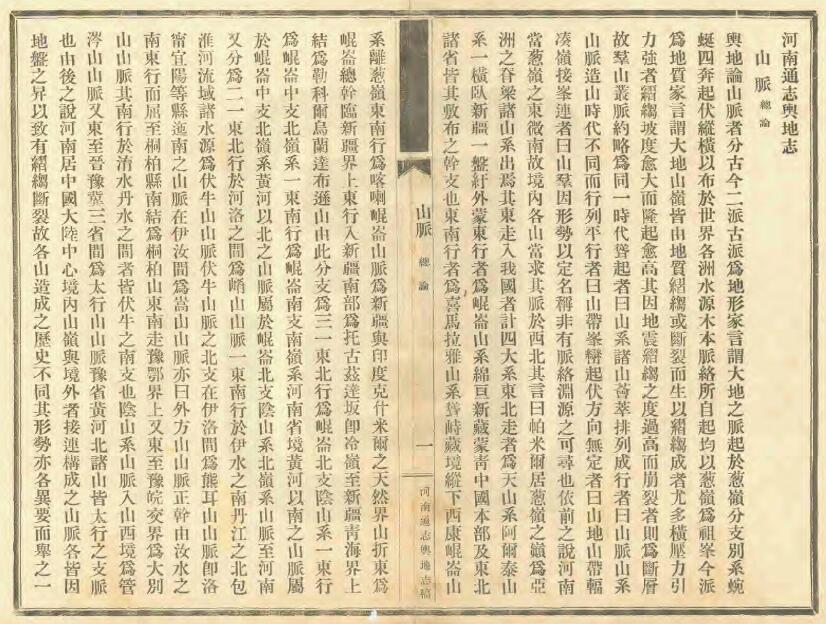 河南通志輿地志
山脈 總論
輿地論山脈者分古今二派古派爲地形家言謂大地之脈起於葱嶺分支別系蜿
蜒四奔起伏縱橫以布於世界各洲水源木本脈絡所自起均以葱嶺爲祖峯今派
爲地質家言謂大地山嶺皆由地質縐縐或斷裂而生以縐縐成者尤多橫壓力引
力強者縐縐坡度愈大而隆起愈高其因地震縐縐之度過高而崩裂者則爲斷層
故羣山叢脈約略爲同一時代聳起者曰山系諸山薈萃排列成行者曰山脈山系
山脈造山時代不同而行列平行者曰山帶峯巒起伏方向無定者曰山地山帶輻
湊嶺接峯連者曰山羣因形勢以定名稱非有脈絡淵源之可尋也依前之說河南
當葱嶺之東微南故境內各山當求其脈於西北其言曰帕米爾居葱嶺之巔爲亞
洲之脊梁諸山系出焉其東走入我國者計四大系東北走者爲天山系阿爾泰山
系一橫臥新疆一盤紆外蒙東行者爲崐崙山系綿亘新藏蒙青中國本部及東北
諸省皆其敷布之幹支也東南行者爲喜馬拉雅山系聳峙藏境縱下西康崐崙山
山脈 總論
一
河南通志輿地志稿
系離葱嶺東南行爲喀喇崐崙山脈爲新疆與印度克什米爾之天然界山折東爲
崐崙總幹臨新疆界上東行入新疆南部爲托古茲達坂卽冷嶺至新疆青海界上
結爲勒科爾烏蘭達布遜山由此分支爲三一東北行爲崐崙北支陰山系一東行
爲崐崙中支北嶺系一東南行爲崐崙南支南嶺系河南省境黃河以南之山脈屬
於崐崙中支北嶺系黃河以北之山脈屬於崐崙北支陰山系北嶺系山脈至河南
又分爲二一東北行於河洛之間爲崤山山脈一東南行於伊水之南丹江之北包
淮河流域諸水源爲伏牛山山脈伏牛山脈之北支在伊洛間爲熊耳山山脈卽洛
甯宜陽等縣迤南之山脈在伊汝間爲嵩山山脈亦曰外方山山脈正幹由汝水之
南東行而屈至桐柏縣南結爲桐柏山東南走豫鄂界上又東至豫皖交界爲大別
山山脈其南行於淯水丹水之間者皆伏牛之南支也陰山系山脈入山西境爲管
涔山山脈又東至晉豫冀三省間爲太行山山脈豫省黃河北諸山皆太行之支脈
也由後之說河南居中國大陸中心境內山嶺與境外者接連構成之山脈各皆因
地盤之昇以致有縐縐斷裂故各山造成之歷史不同其形勢亦各異要而舉之一